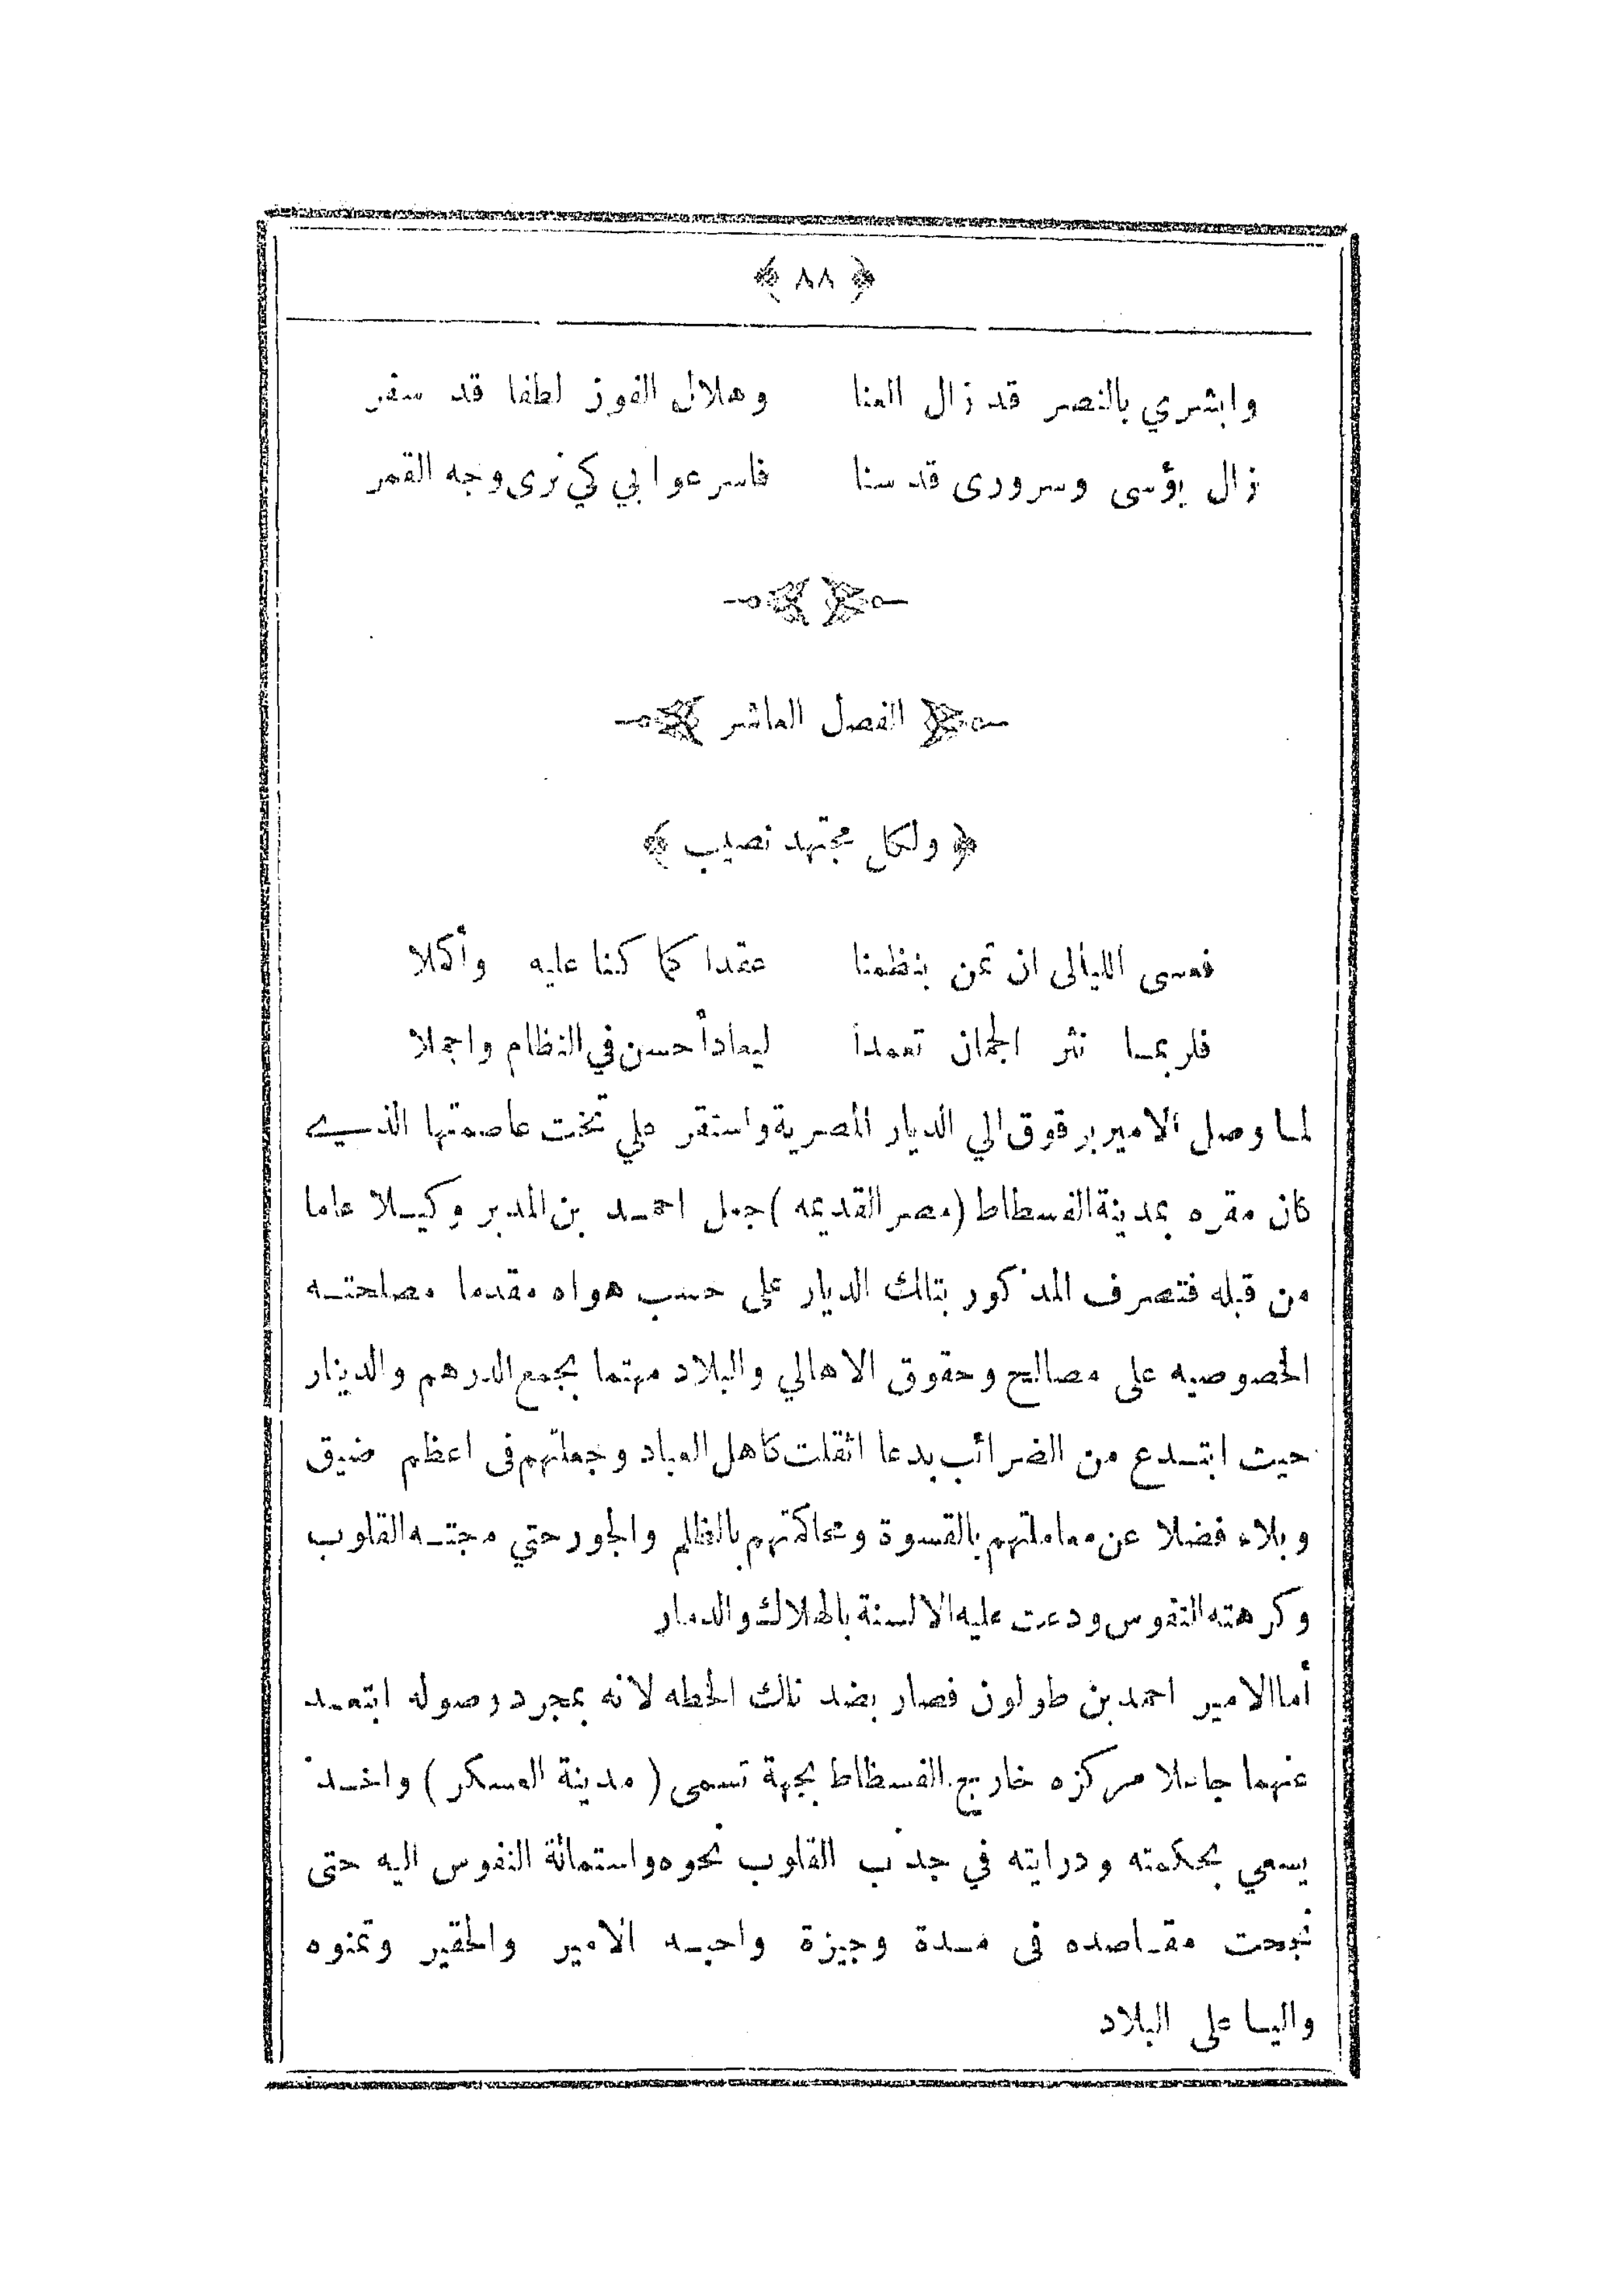 ﴿ ٨٨ ﴾
وابشري بالنصر قد زال العنا وهلال الفوز لطفا قد سفر
زال بؤسى وسرورى قد سنا فاسرعوا بي كي نرى وجه القمر
﴿ الفصل العاشر ﴾
﴿ ولكل مجتهد نصيب ﴾
فعسى الليالى ان تمن بنظمنا عقدا كما كنا عليه وأكملا
فلربما نثر الجمان تعمدا ليعاد أحسن في النظام واجملا
لما وصل الامير برقوق الي الديار المصرية واستقر علي تخت عاصمتها الذسيے
كان مقره بمدينة الفسطاط (مصر القديمه) جعل احمد بن المدبر وكيلا عاما
من قبله فتصرف المذكور بتلك الديار على حسب هواه مقدما مصلحته
الخصوصيه على مصالح وحقوق الاهالي والبلاد مهتما بجمع الدرهم والدينار
حيث ابتدع من الضرائب بدعا اثقلت كاهل العباد وجعلتهم فى اعظم ضيق
وبلاء فضلا عن معاملتهم بالقسوة ومحاكمتهم بالظلم والجور حتي مجته القلوب
وكرهته النفوس ودعت عليه الالسنة بالهلاك والدمار
أما الامير احمد بن طولون فصار بضد تلك الخطه لانه بمجرد وصوله ابتعد
عنهما جاعلا مركزه خارج الفسطاط بجهة تسمى (مدينة العسكر) واخذ
يسعي بحكمته ودرايته في جذب القلوب نحوه واستمالة النفوس اليه حتى
نجحت مقاصده فى مدة وجيزة واحبه الامير والحقير وتمنوه
واليا على البلاد